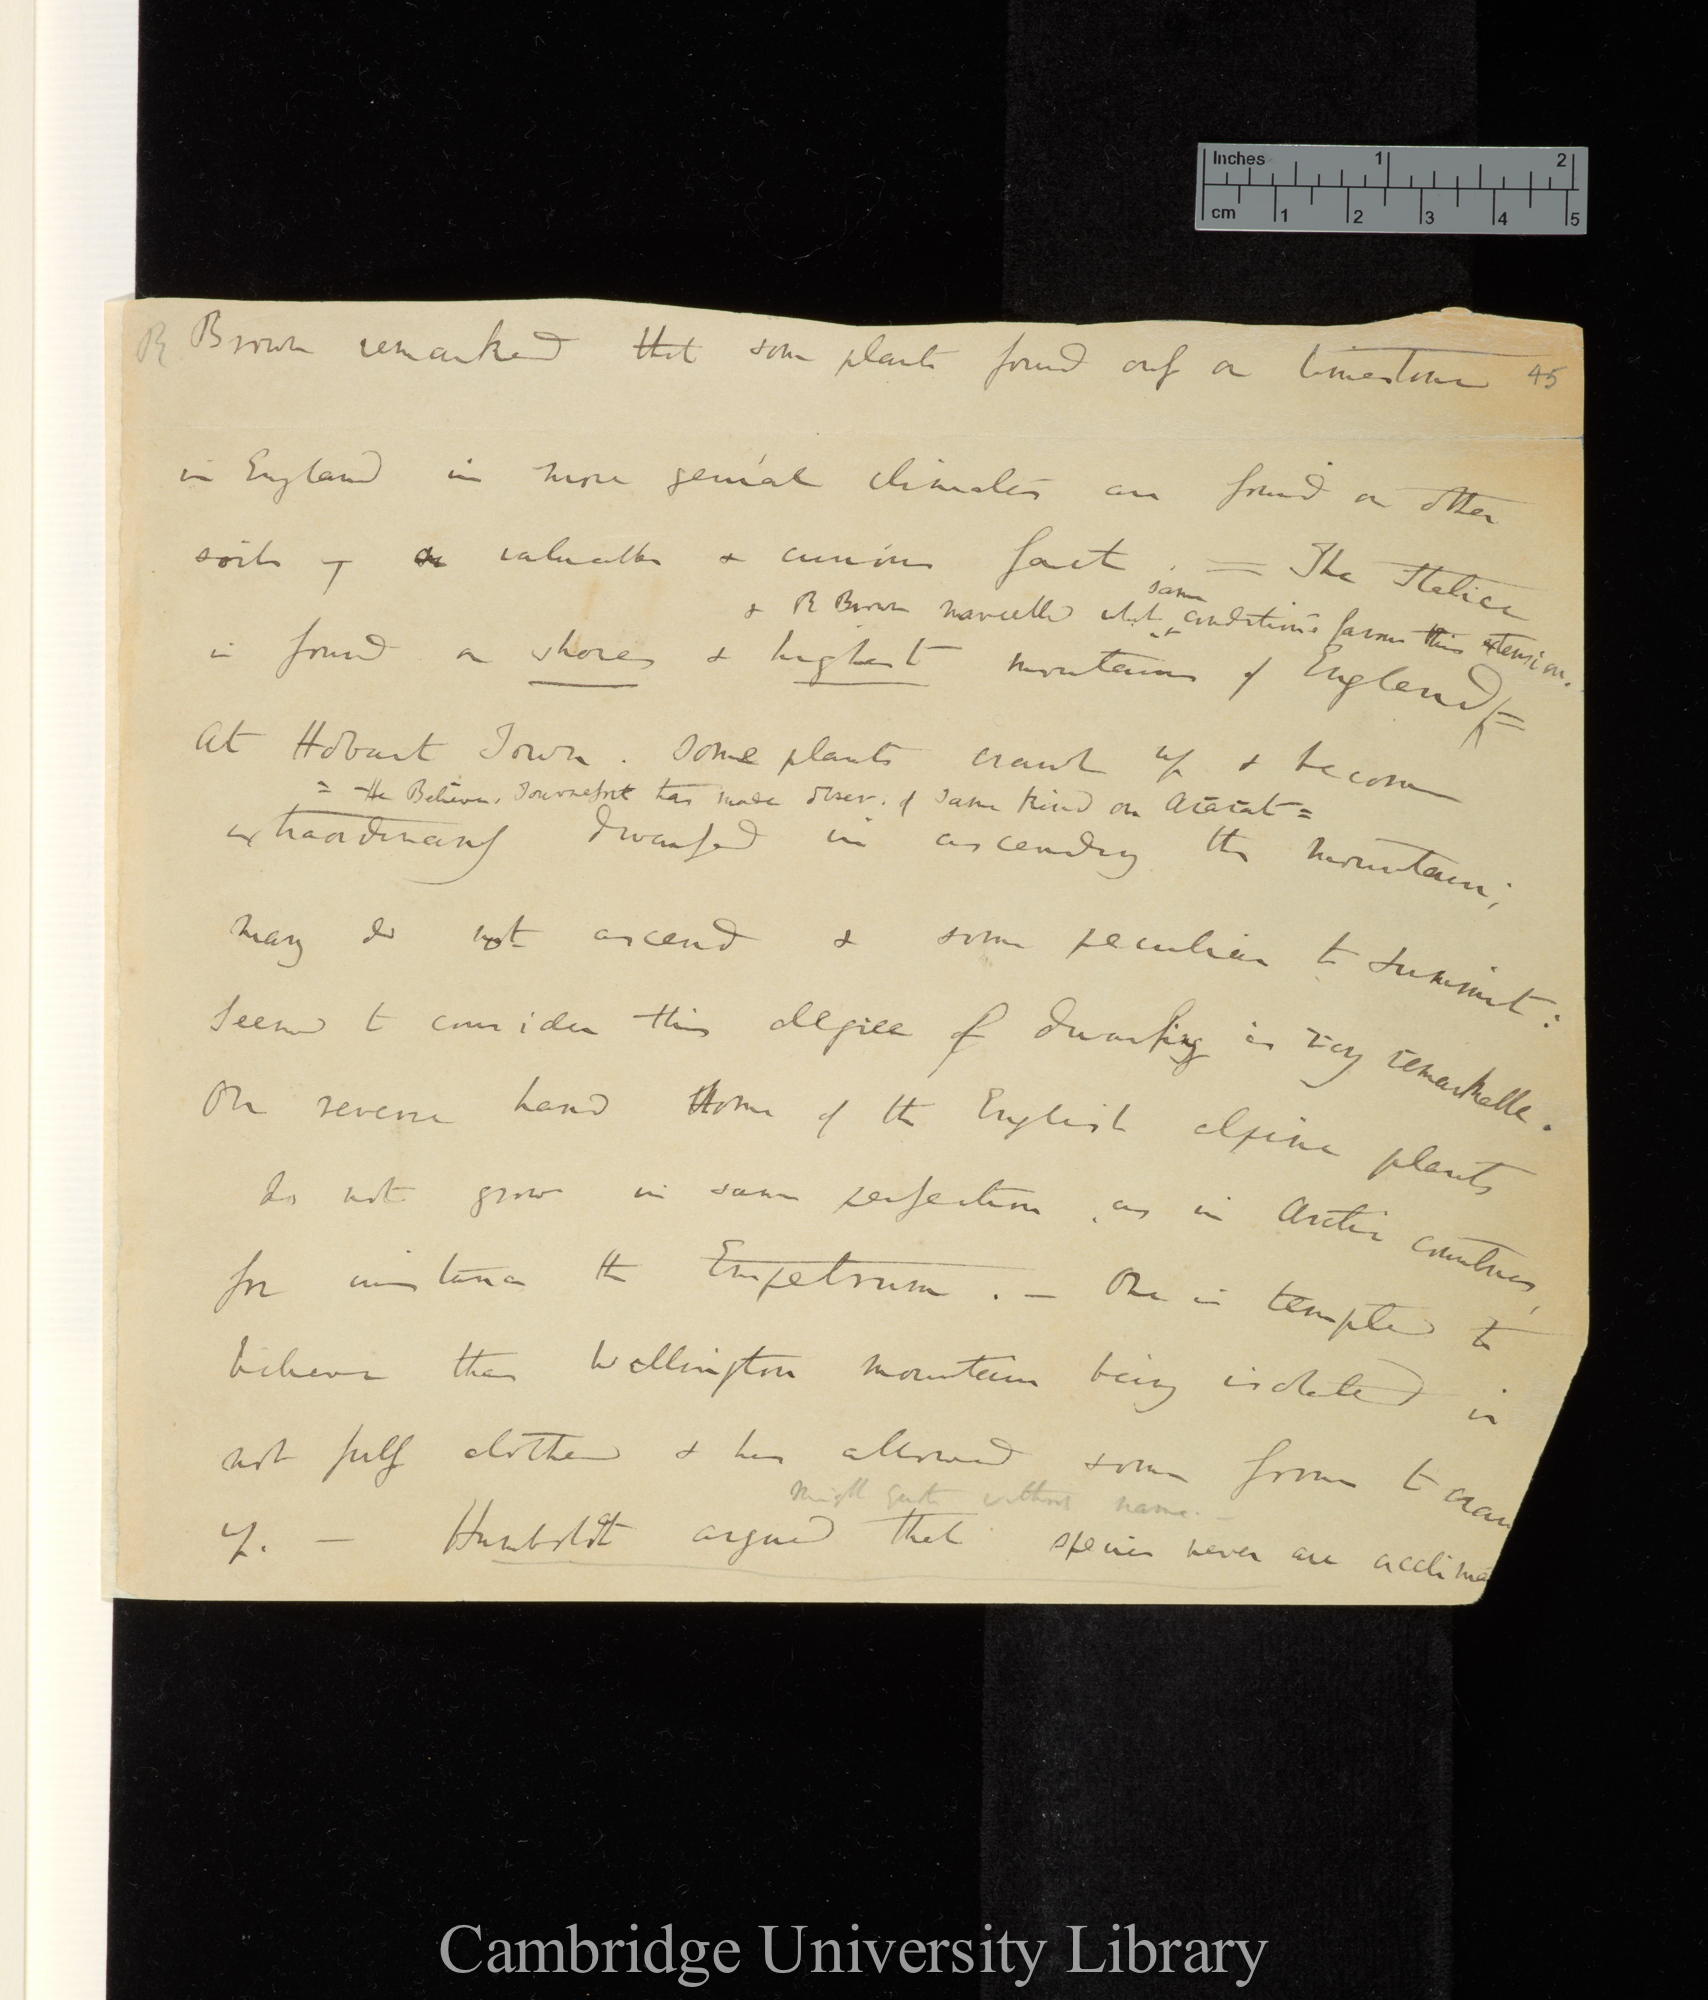 Inches 1 2
cm 1 2 3 4 5
R Brown remarked that some plants found only on limestone 45
in England in more genial climates are found on other
soils valuable & curious fact. = The Statice
same
& R Brown marvelled what conditions favour this extension.
is found on shores & highest mountains of England =
At Hobart Town. Some plants crawl up & become
= He Believes, Tournefort has made obser. of same kind on Ararat =
extraordinarily dwarfed in ascending the mountain;
many do not ascend & some peculiar to summit:
seemed to consider this degree of dwarfing as very remarkable.
On reverse hand some of the English alpine plants
do not grow in same perfection, as in Arctic countries,
for instance the Empetrum. — One is tempted to
believe that Wellington mountain being isolated is
not fully clothed & has allowed some forms to craw
might quote without name. —
up. — Humboldt argued that species never are acclima
Cambridge University Library